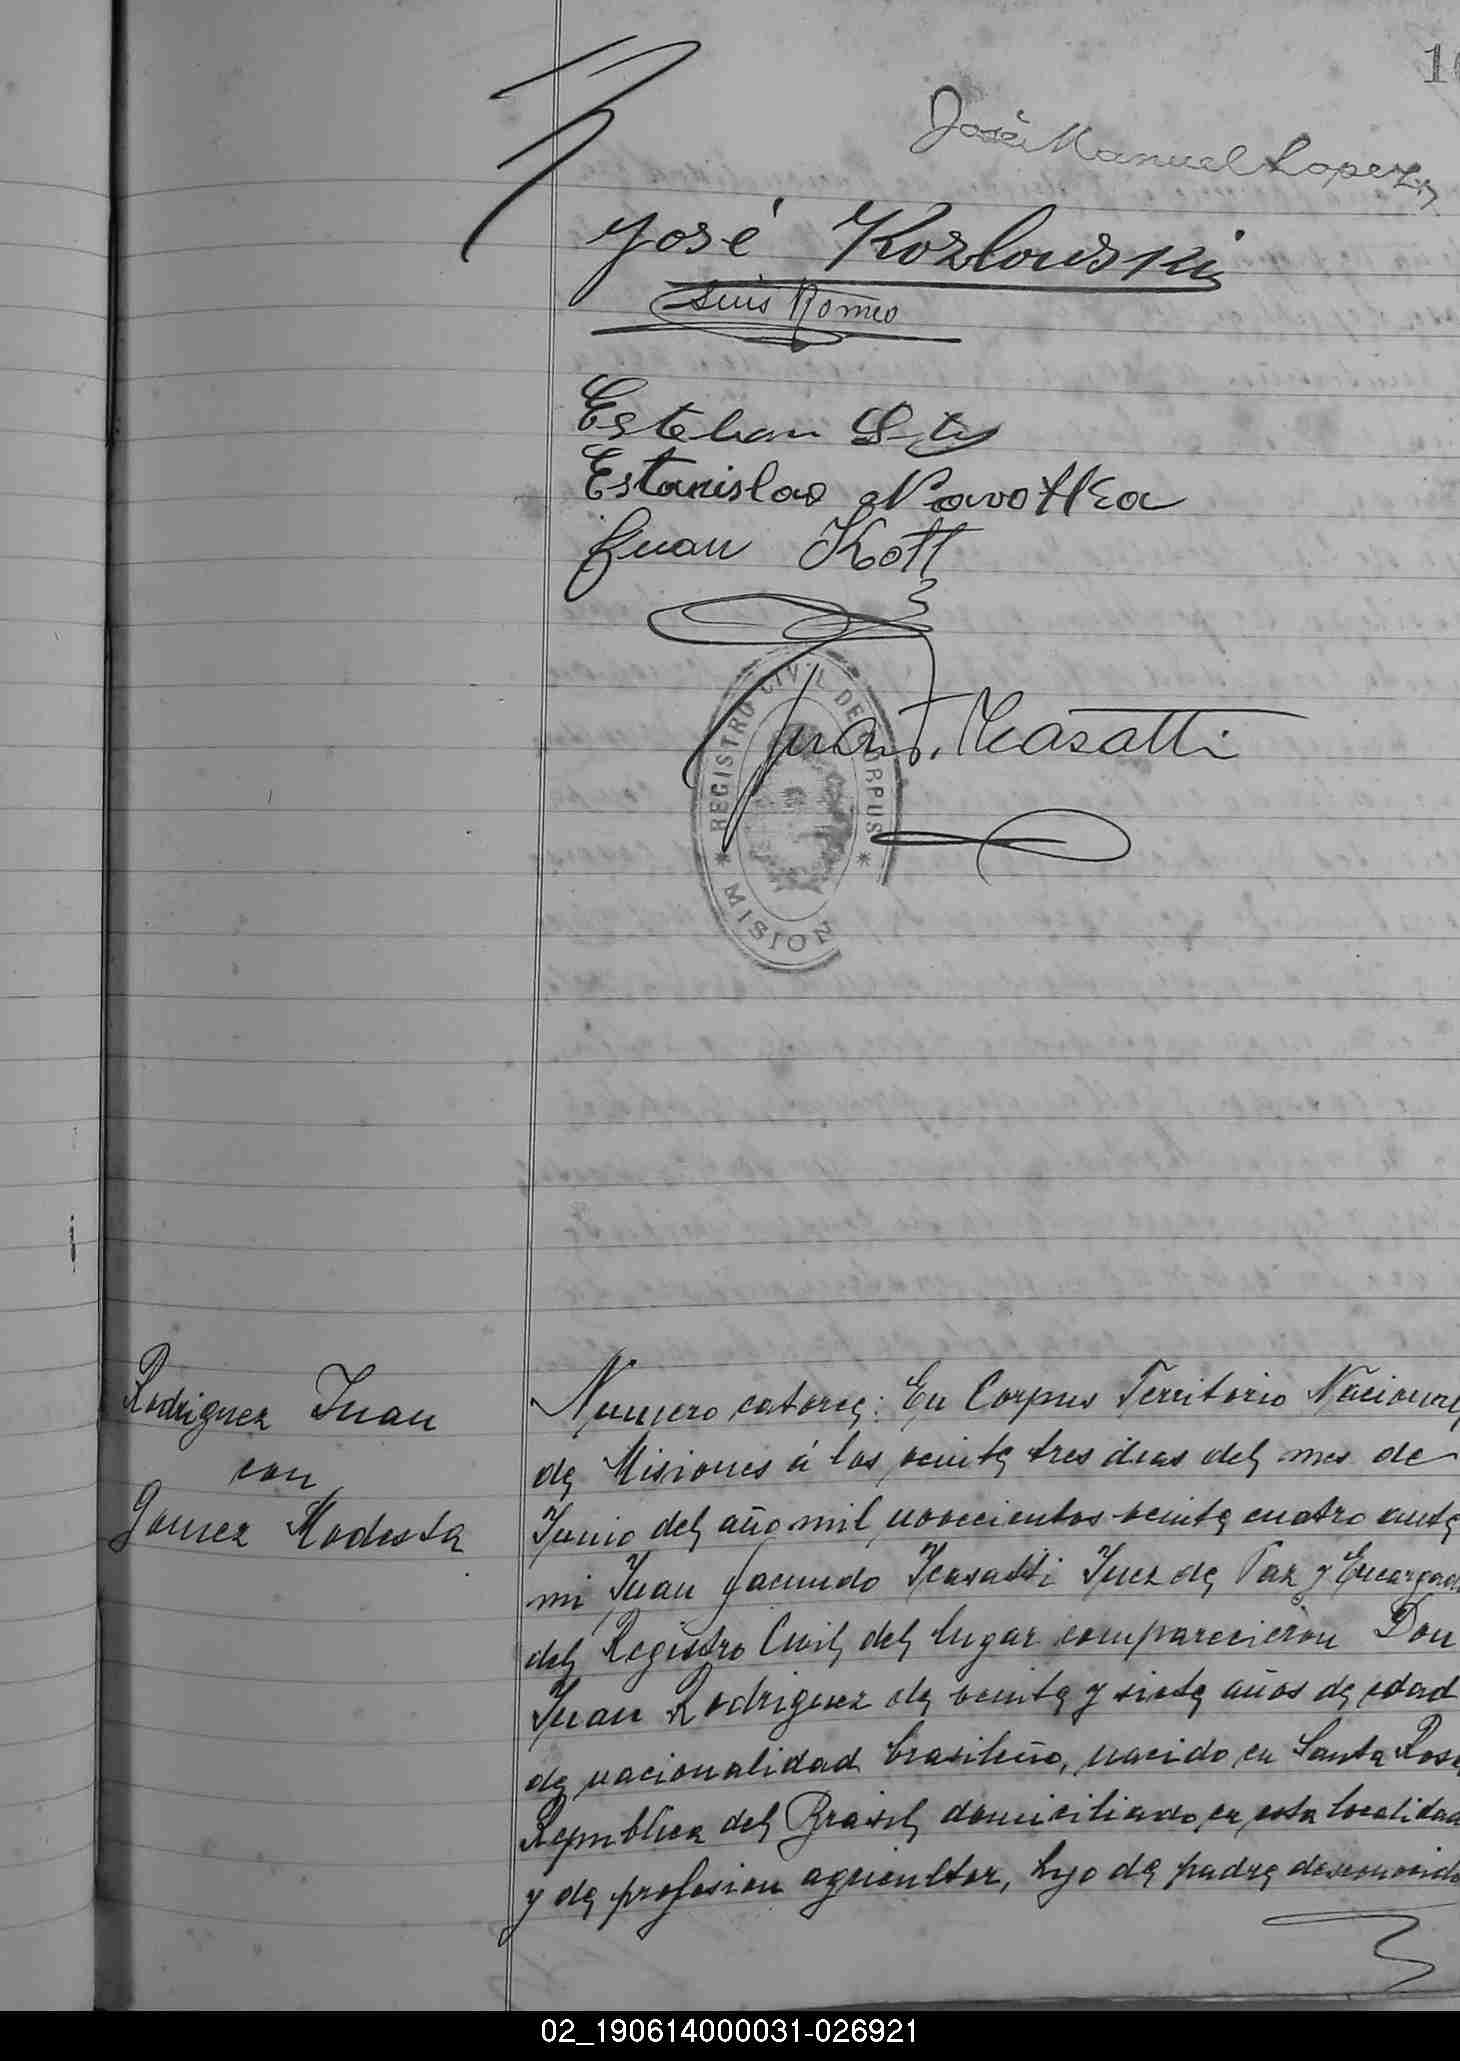 10
José Manuel Lopez
José Kozlowski
Luis Romeo
Esteban
Estanislao
Juan Kott
REGISTRO CIVIL DE CORPUS
* MISION *
Juan F.
Rodriguez Juan
con
Gomez Modesta
Numero catorce: En Corpus Territorio Nacional
de Misiones á los veinte tres dias del mes de
Junio del año mil novecientos veinte cuatro ante
mi Juan Facundo Juez de Paz y Encargado
del Registro Civil del lugar comparecieron Don
Juan Rodriguez de veinte y siete años de edad
de nacionalidad brasileño, nacido en Santa Rosa
Republica del Brasil domiciliado en esta localidad
y de profesion agricultor, hijo de padre desconocido
02_190614000031-026921